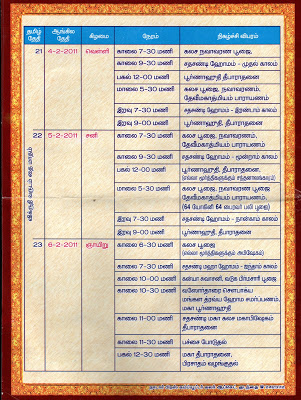 தமிழ் தேதி ஆங்கில தேதி கிழமை நேரம் நிகழ்ச்சி விபரம்
21 4-2-2011 வெள்ளி காலை 7-30 மணி கலச நவாவரண பூஜை,
காலை 9-30 மணி சதசண்டி ஹோமம் - முதல் காலம்
பகல் 12-00 மணி பூர்ணாஹுதி தீபாராதனை
மாலை 5-30 மணி கலச பூஜை, நவாவரணம்,
தேவீமகாத்மியம் பாராயணம்
இரவு 7-30 மணி சதசண்டி ஹோமம் - இரண்டாம் காலம்
இரவு 9-00 மணி பூர்ணாஹுதி, தீபாராதனை
விக்ருதி வருடம் தை மாதம்
22 5-2-2011 சனி காலை 7-30 மணி கலச பூஜை, நவாவரணம்,
தேவீமகாத்மியம் பாராயணம்
காலை 9-30 மணி சதசண்டி ஹோமம் - மூன்றாம் காலம்
பகல் 12-00 மணி பூர்ணாஹுதி, தீபாராதனை,
மாலை 5-30 மணி கலச பூஜை, நவாவரண பூஜை
தேவீமகாத்மியம் பாராயணம்,
(64 யோகினி 64 பைரவர் பலி பூஜை)
இரவு 7-30 மணி சதசண்டி ஹோமம் - நான்காம் காலம்
இரவு 9-00 மணி பூர்ணாஹுதி, தீபாராதனை
23 6-2-2011 ஞாயிறு காலை 6-30 மணி கலச பூஜை
காலை 7-30 மணி சதசண்டி மஹா ஹோமம் - ஐந்தாம் காலம்
காலை 10-00 மணி கன்யா சுவாசினி, வடுக பிரம்மச்சாரி பூஜை
காலை 10-30 மணி
மங்கள த்ரவ்ய ஹோம சமர்ப்பணம்,
மகா பூர்ணாஹுதி
காலை 11-00 மணி சதசண்டி மகா கலச மகாபிஷேகம்
தீபாராதனை
காலை 11-30 மணி பச்சை போடுதல்
பகல் 12-30 மணி மகா தீபாராதனை,
பிரசாதம் வழங்குதல்